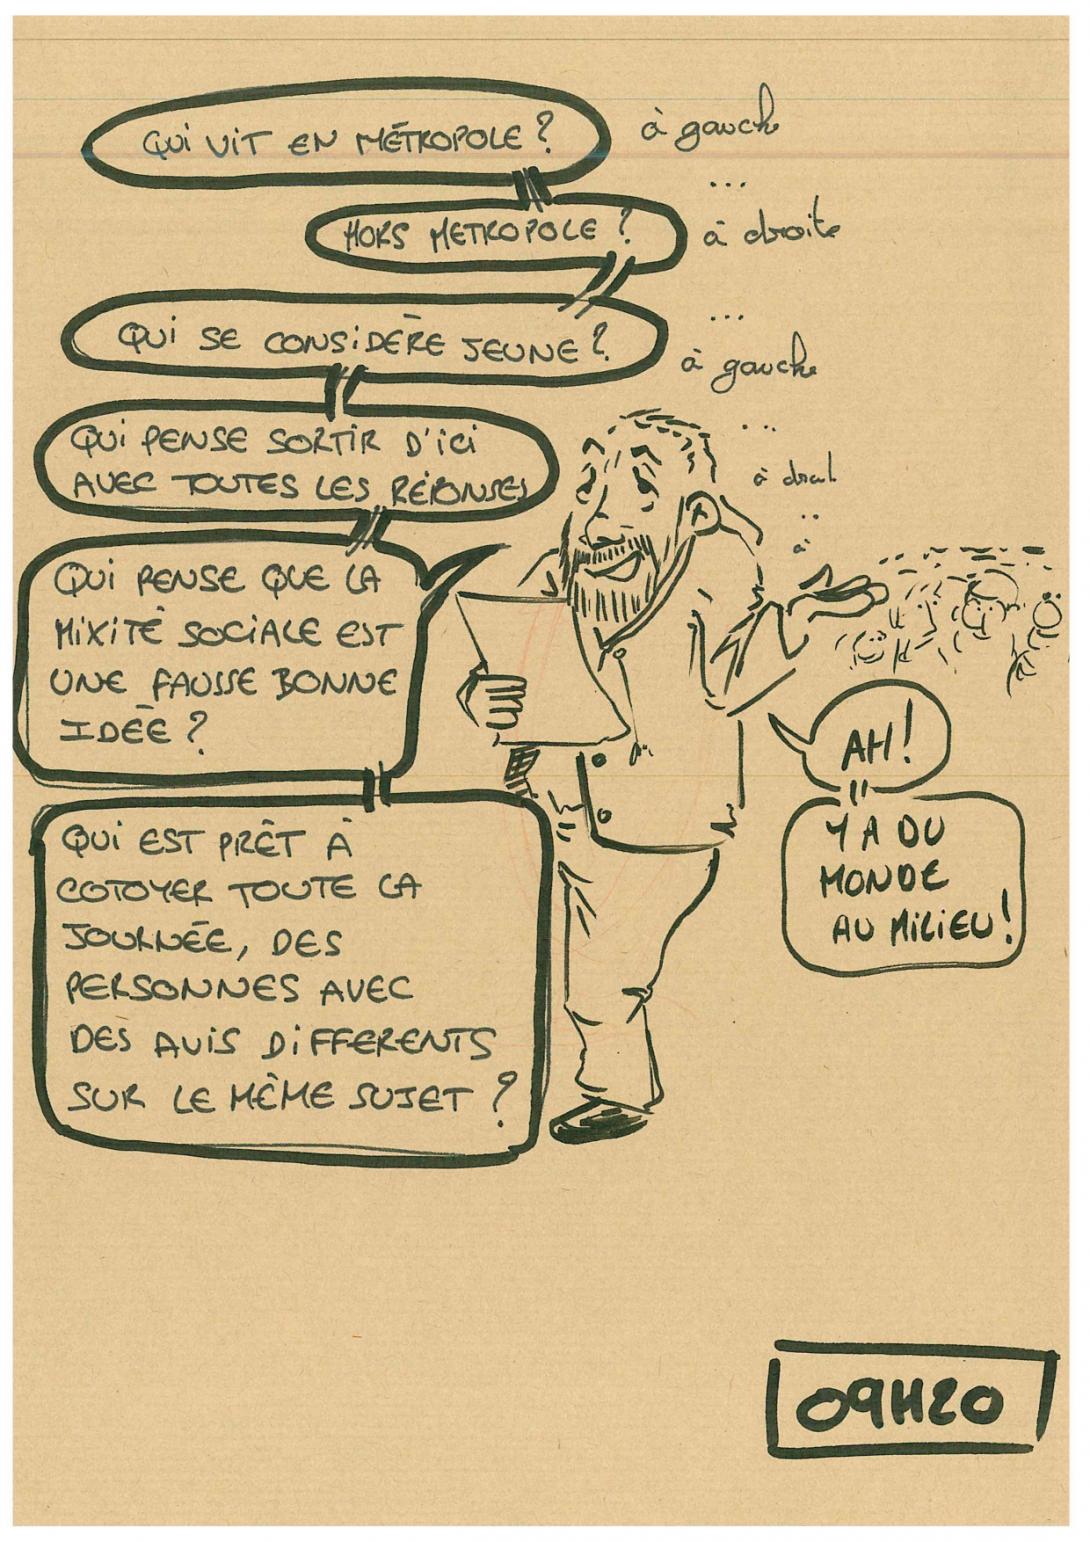 QUI VIT EN MÉTROPOLE ?
à gauche
...
HORS METROPOLE ?
à droite
...
QUI SE CONSIDÈRE JEUNE ?
à gauche
...
QUI PENSE SORTIR D'ICI
AVEC TOUTES LES RÉPONSES
à
..
à
QUI PENSE QUE LA
MIXITÉ SOCIALE EST
UNE FAUSSE BONNE
IDÉE ?
AH !
Y A DU
MONDE
AU MILIEU !
QUI EST PRÊT À
COTOYER TOUTE LA
JOURNÉE, DES
PERSONNES AVEC
DES AVIS DIFFERENTS
SUR LE MÊME SUJET ?
09H20